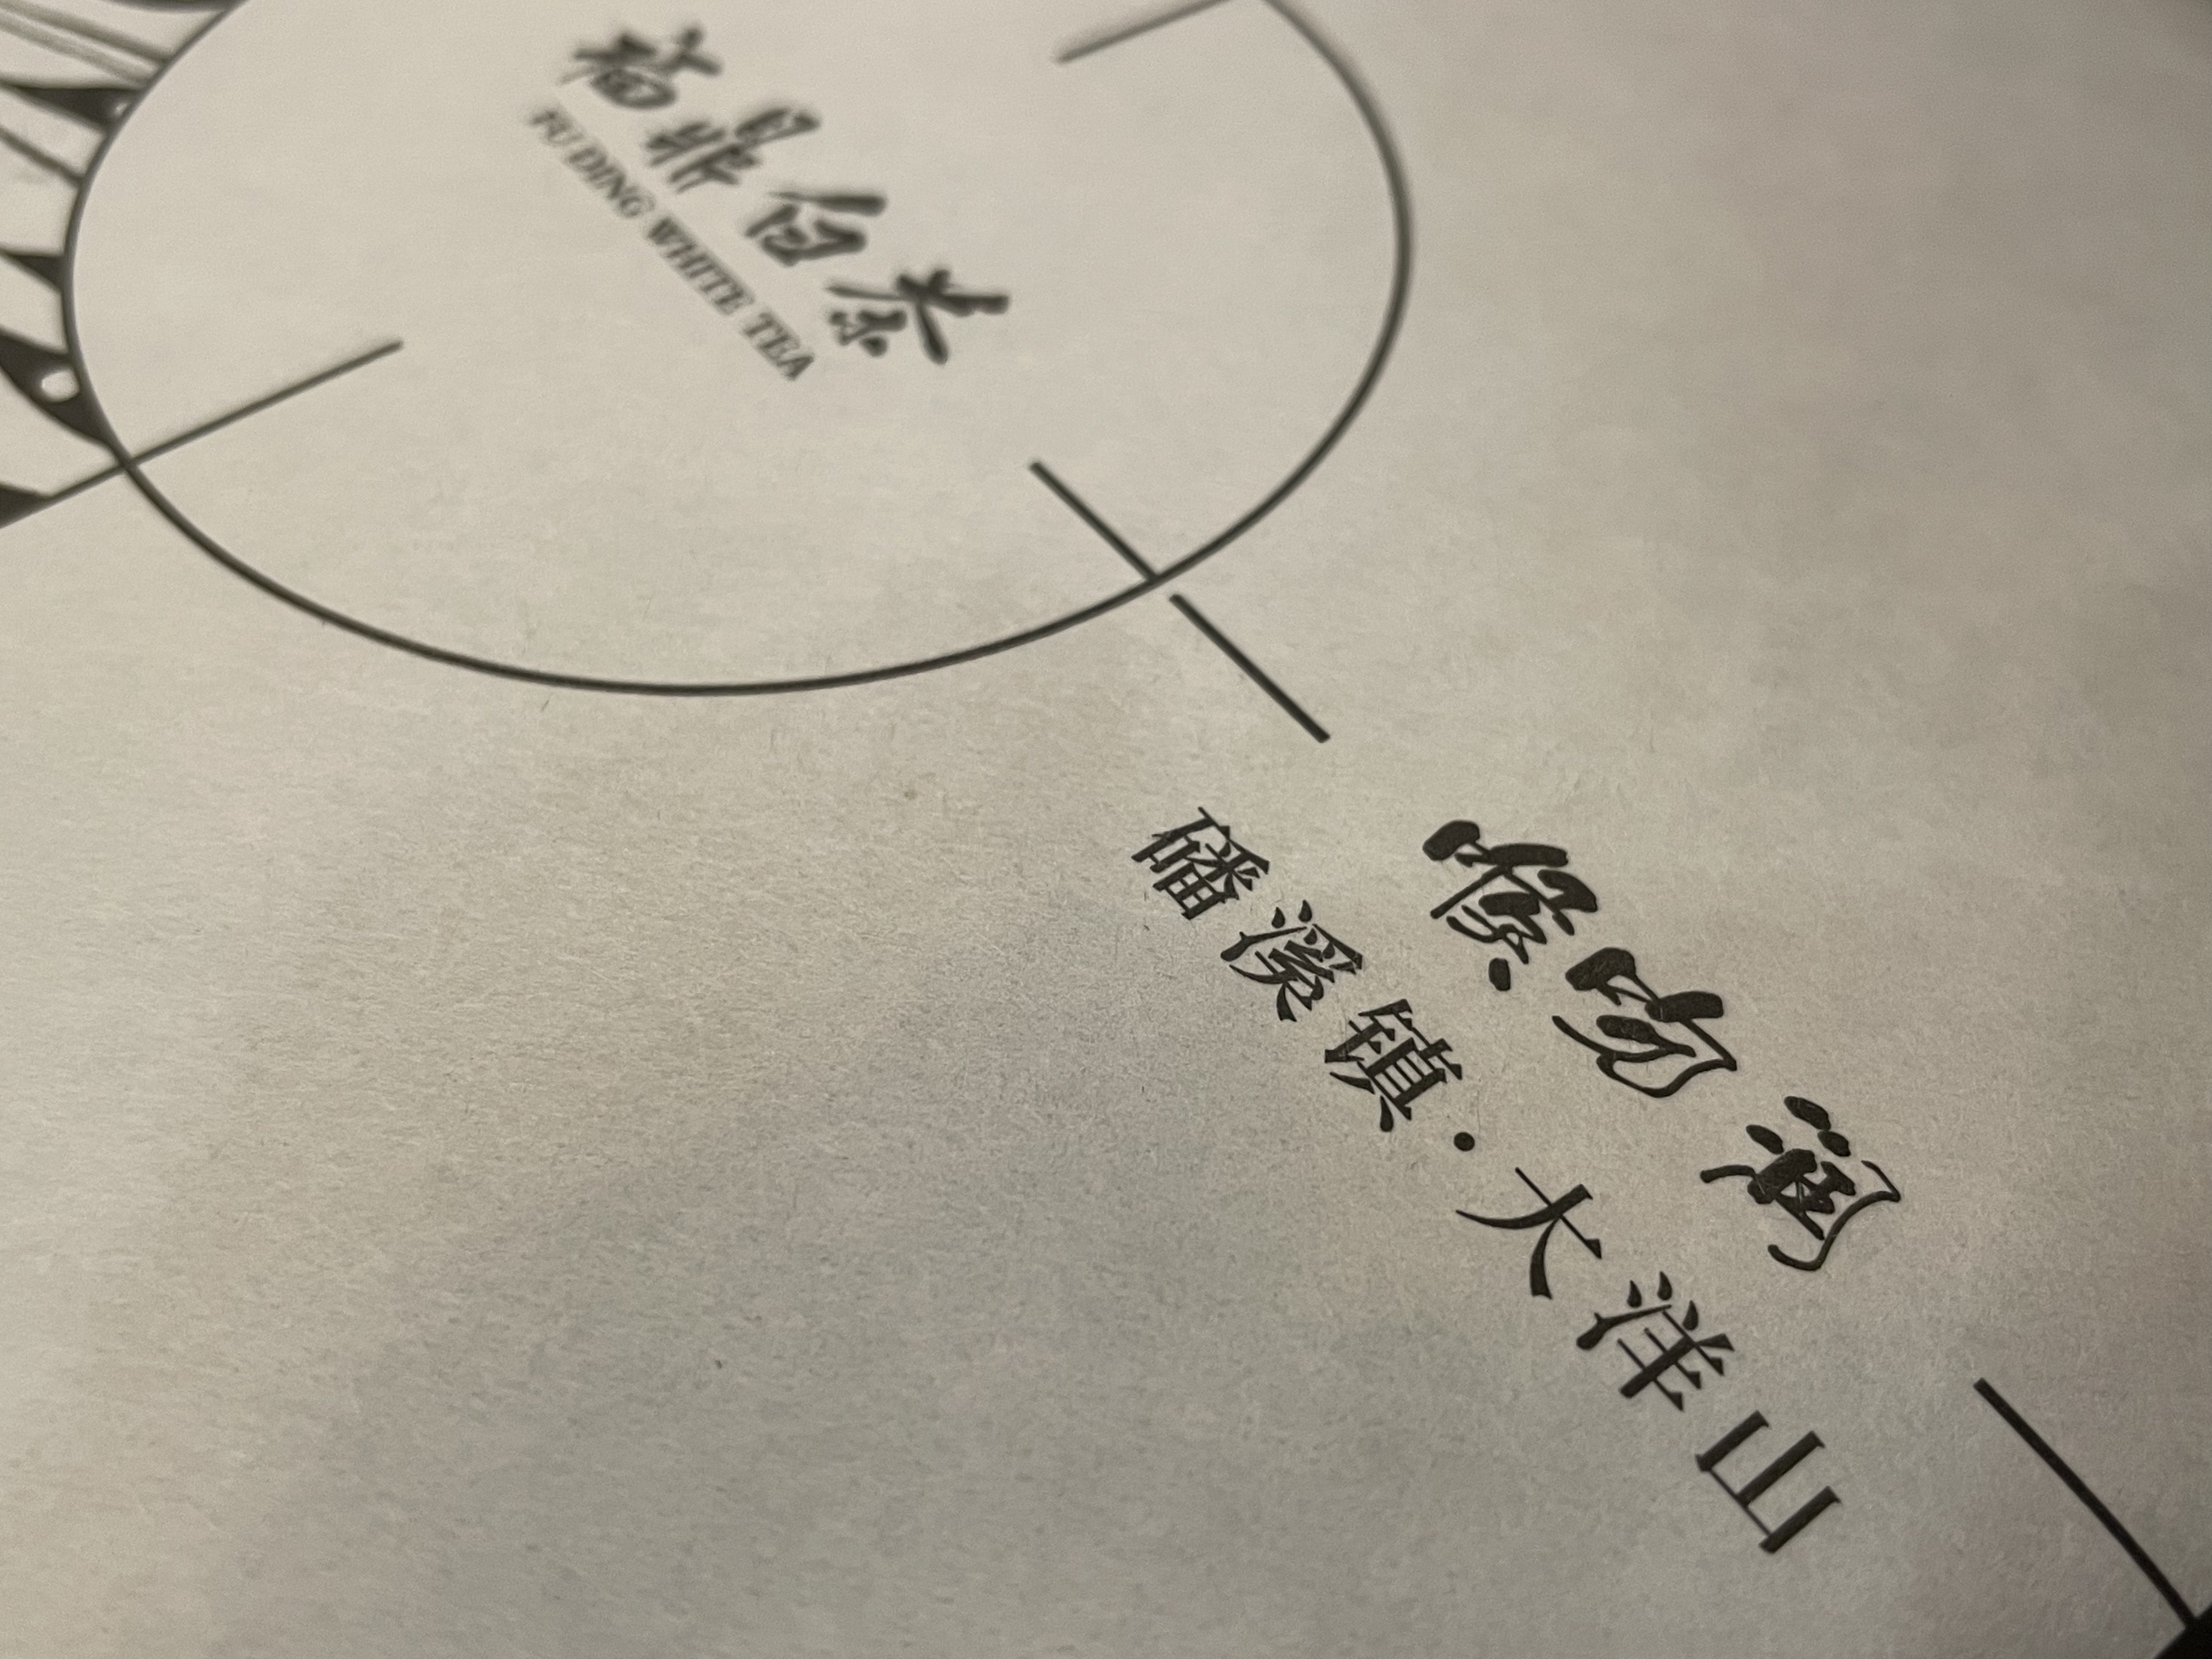 福鼎白茶
FU DING WHITE TEA
喉吻润
磻溪镇·大洋山